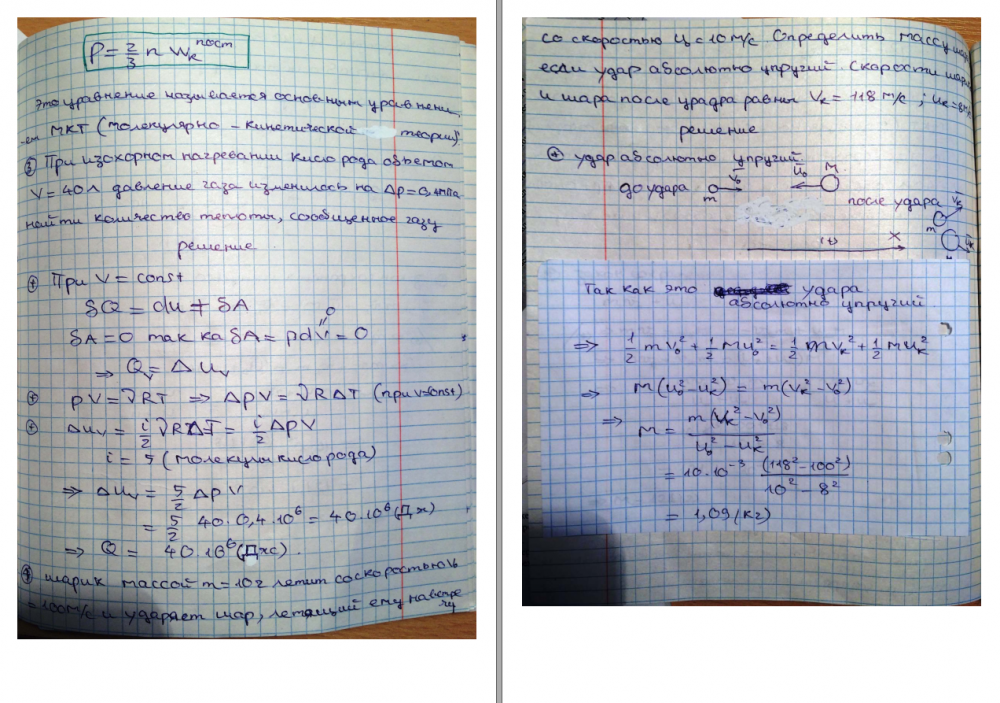 P = 2/3 n Wк^пост
Это уравнение называется основным уравнени
-ем МКТ (молекулярно - кинетической теории)
③ При изохорном нагревании кислорода объемом
V = 40 л давление газа изменилось на Δp = 0,4 МПа
найти количество теплоты, сообщенное газу
решение
При V = const
δQ = du + δA
δA = 0 так ка δA = pdV = 0
⇒ Qv = Δuv
pV = νRT ⇒ ΔpV = νRΔT (при v=const)
Δuv = i/2 νRΔT = i/2 ΔpV
i = 5 (молекулы кислорода)
⇒ Δuv = 5/2 Δp V
= 5/2 40 · 0,4 · 10⁶ = 40 · 10⁶ (Дж)
⇒ Q = 40 10⁶ (Дж).
④ шарик массой m = 10 г летит со скоростью V₀
= 100 м/с и ударяет шар, летящий ему навстре
чу
со скоростью U₀ = 10 м/с. Определить массу шара
если удар абсолютно упругий. Скорости шарик
и шара после урадра равны Vк = 118 м/с ; uк = 8 м/с
решение
удар абсолютно упругий.
до удара m V₀ u₀ M
после удара Vк m uк
(+) X
Так как это удара
абсолютно упругий.
⇒ 1/2 mV₀² + 1/2 Mu₀² = 1/2 mVк² + 1/2 Muк²
⇒ M(u₀² - uк²) = m(Vк² - V₀²)
⇒ M = m(Vк² - V₀²) / u₀² - uк²
= 10 · 10⁻³ (118² - 100²) / 10² - 8²
= 1,09 (кг)